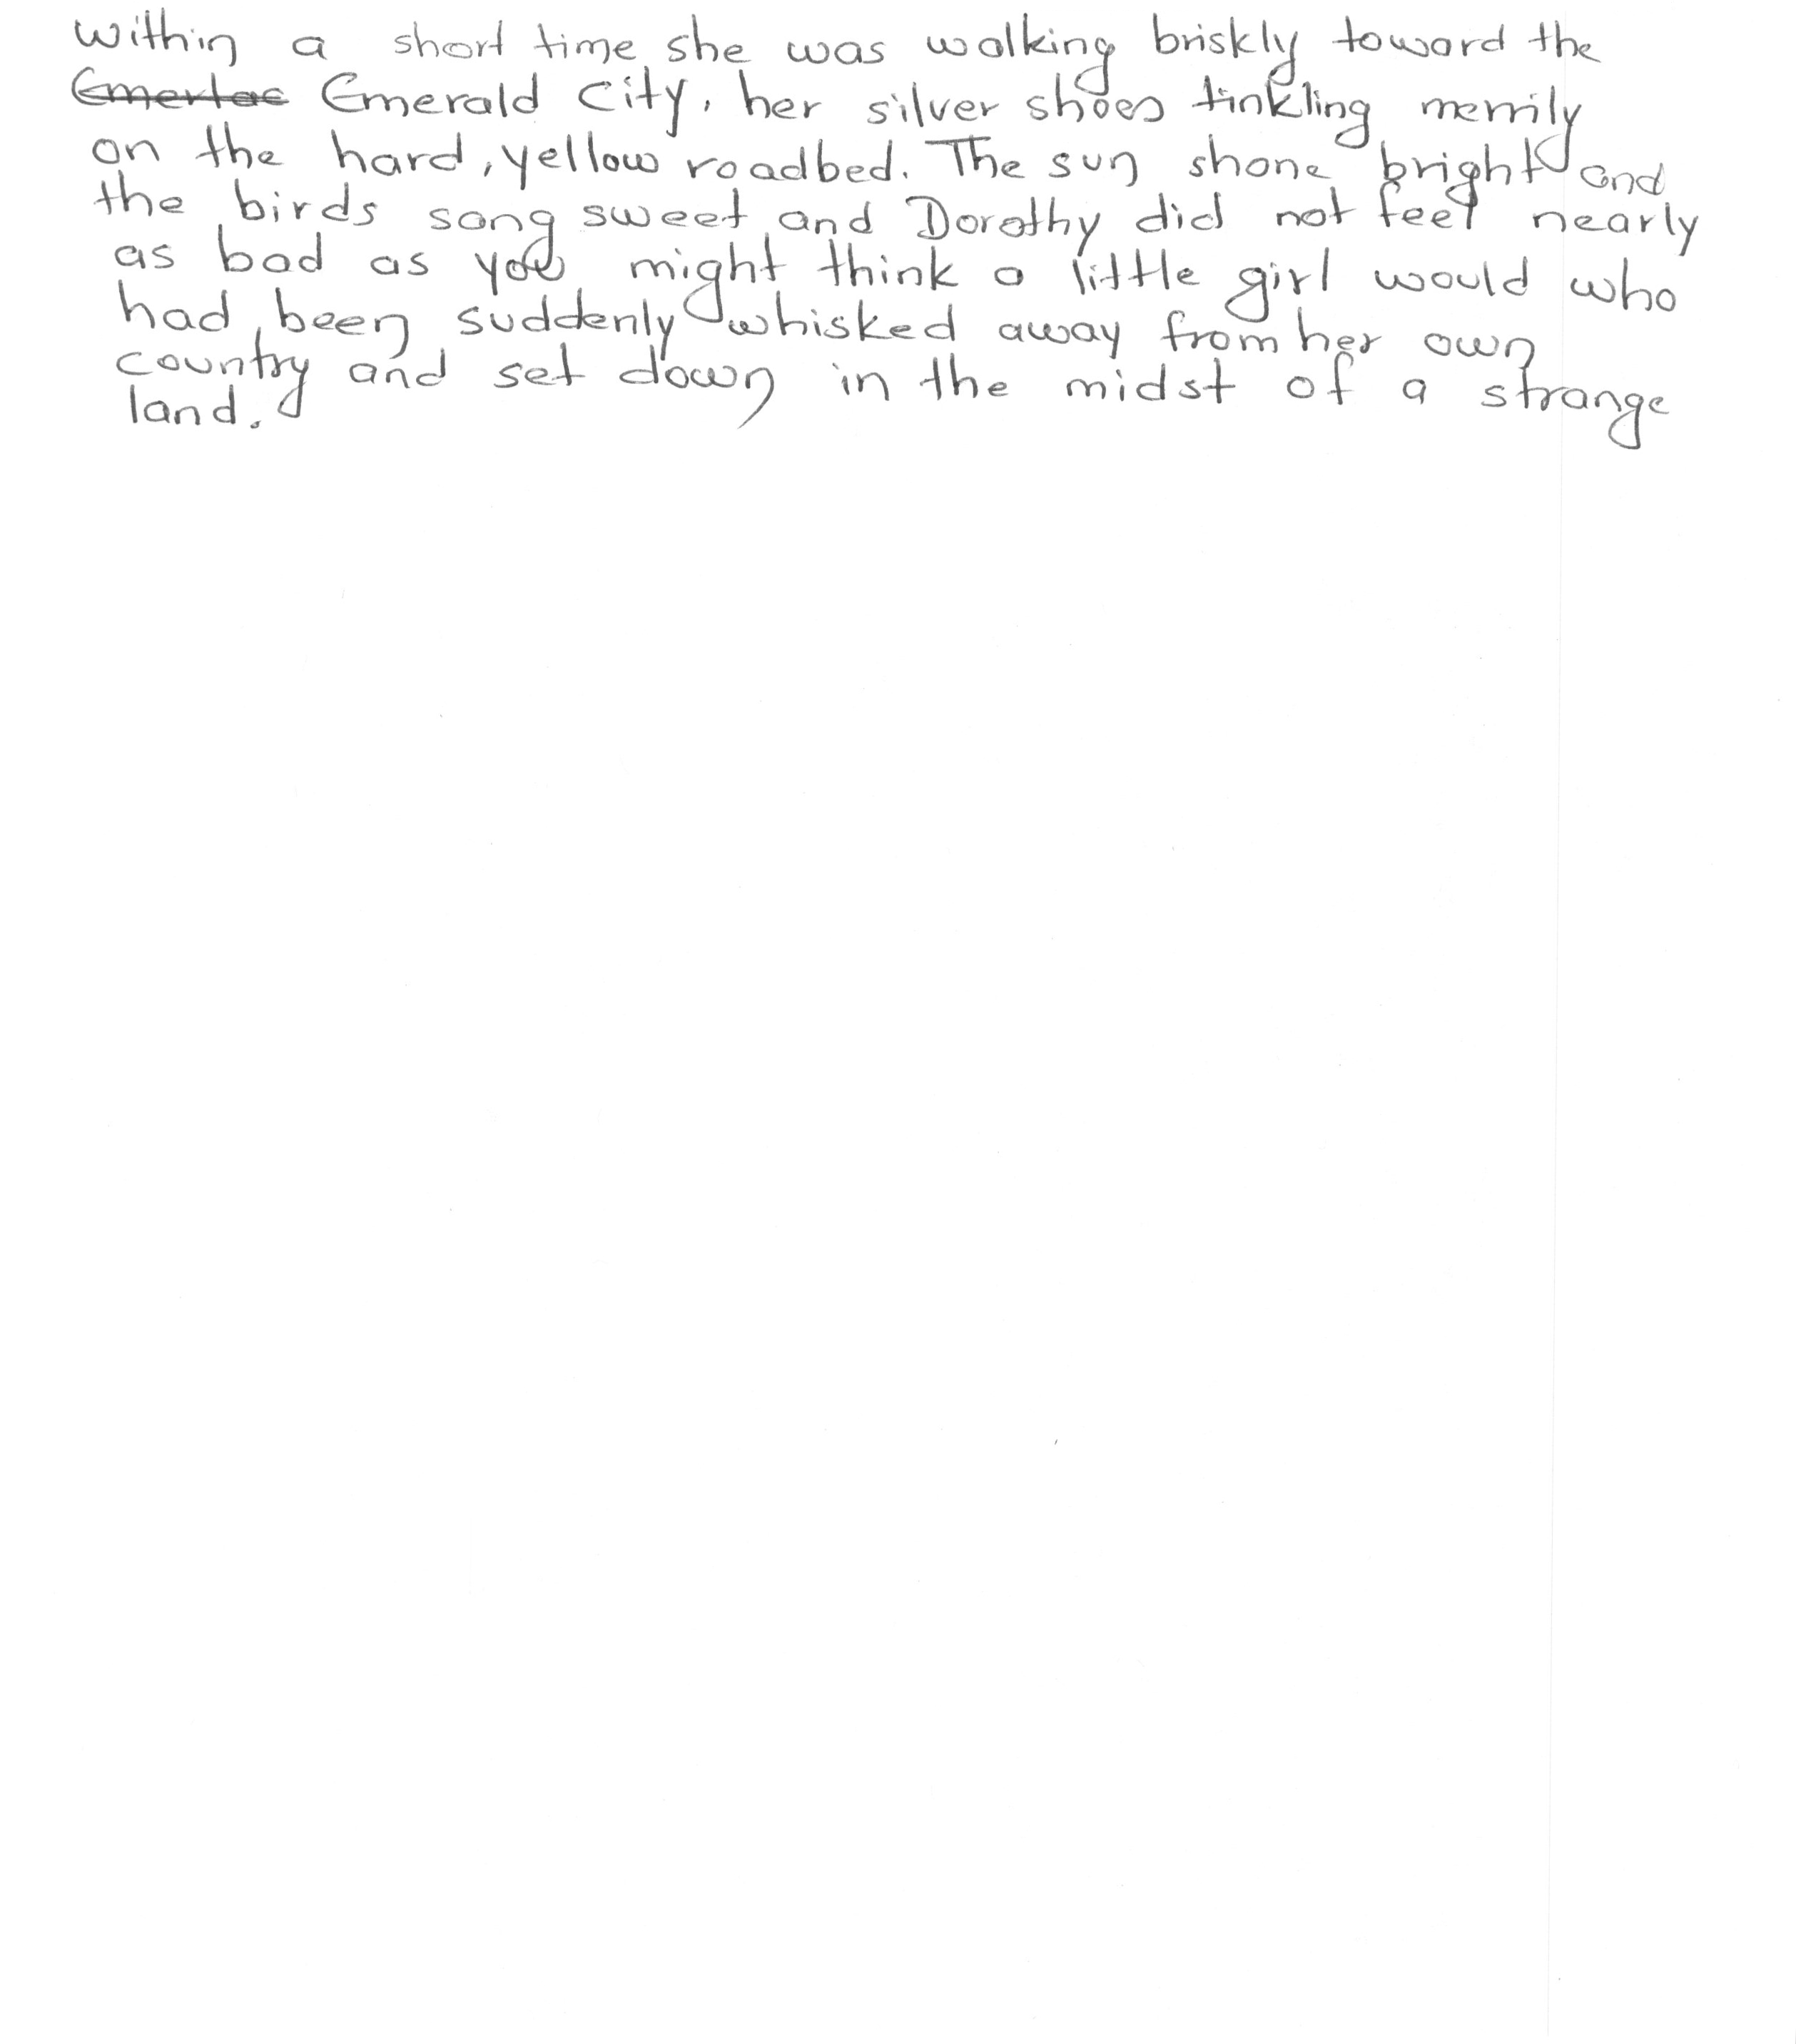 Within a short time she was walking briskly toward the
Emerald City, her silver shoes tinkling merrily
on the hard, yellow roadbed. The sun shone bright and
the birds sang sweet and Dorothy did not feel nearly
as bad as you might think a little girl would who
had been suddenly whisked away from her own
country and set down in the midst of a strange
land.